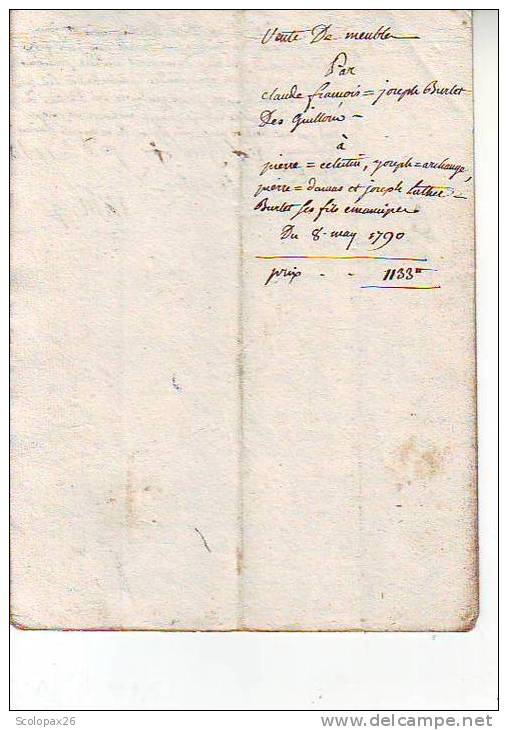 Vente De meubles
Par
claude françois = joseph Burlet
Des Guillon
à
pierre = celestin, joseph = archange,
pierre = damas et joseph luther
Burlet ses fils emancipés
Du 8 may 1790
prix - - 1133#
Scolopax26
www.delcampe.net